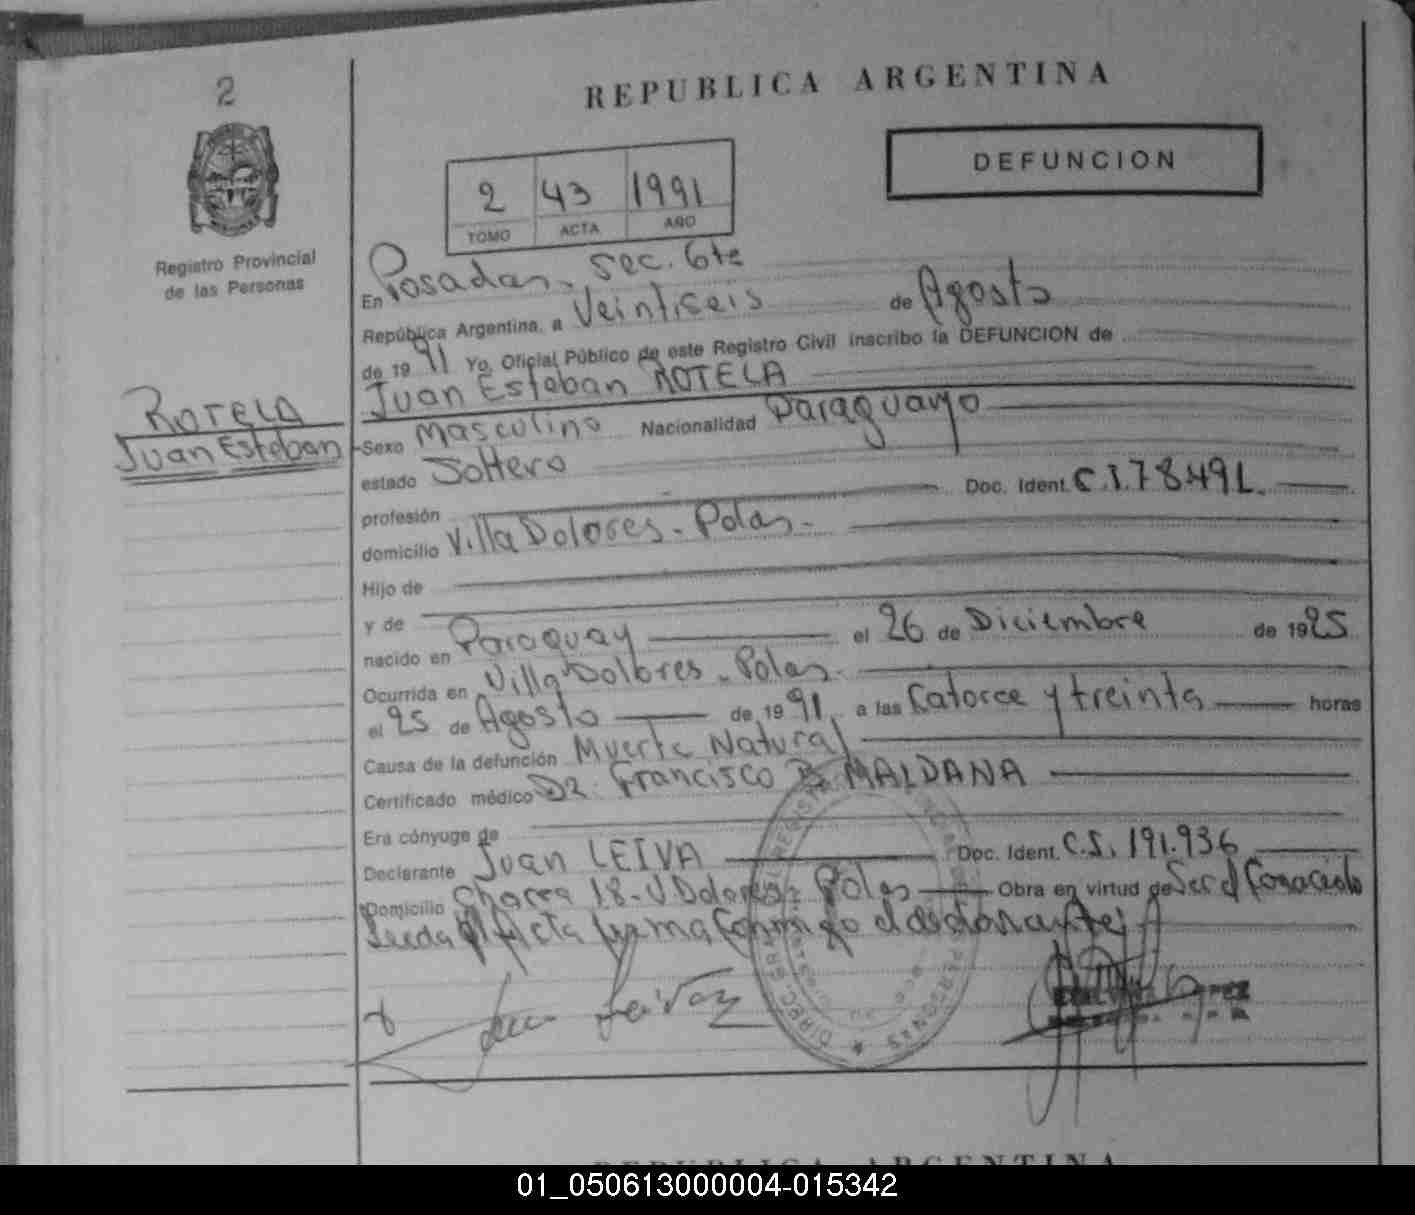 2
REPUBLICA ARGENTINA
DEFUNCION
2 43 1991
TOMO ACTA AÑO
Registro Provincial
de las Personas
En Posadas, Sec. 6ta
República Argentina, a Veintiseis de Agosto
de 1991 Yo, Oficial Público de este Registro Civil inscribo la DEFUNCION de
Juan Esteban ROTELA
ROTELA
Juan Esteban
Sexo Masculino Nacionalidad Paraguayo
estado Soltero
profesión Doc. Ident. C.I.78491.
domicilio Villa Dolores - Pdas.
Hijo de
y de
nacido en Paraguay el 26 de Diciembre de 1925
Ocurrida en Villa Dolores - Pdas.
el 25 de Agosto de 1991 a las Catorce y treinta horas
Causa de la defunción Muerte Natural
Certificado médico Dr. Francisco B. MALDANA
Era cónyuge de
Declarante Juan LEIVA Doc. Ident. C.I. 191.936
Domicilio Chacra 18 - V Dolores - Pdas Obra en virtud de Ser el
Leida el Acta firma conmigo el declarante
REPUBLICA ARGENTINA
01_050613000004-015342